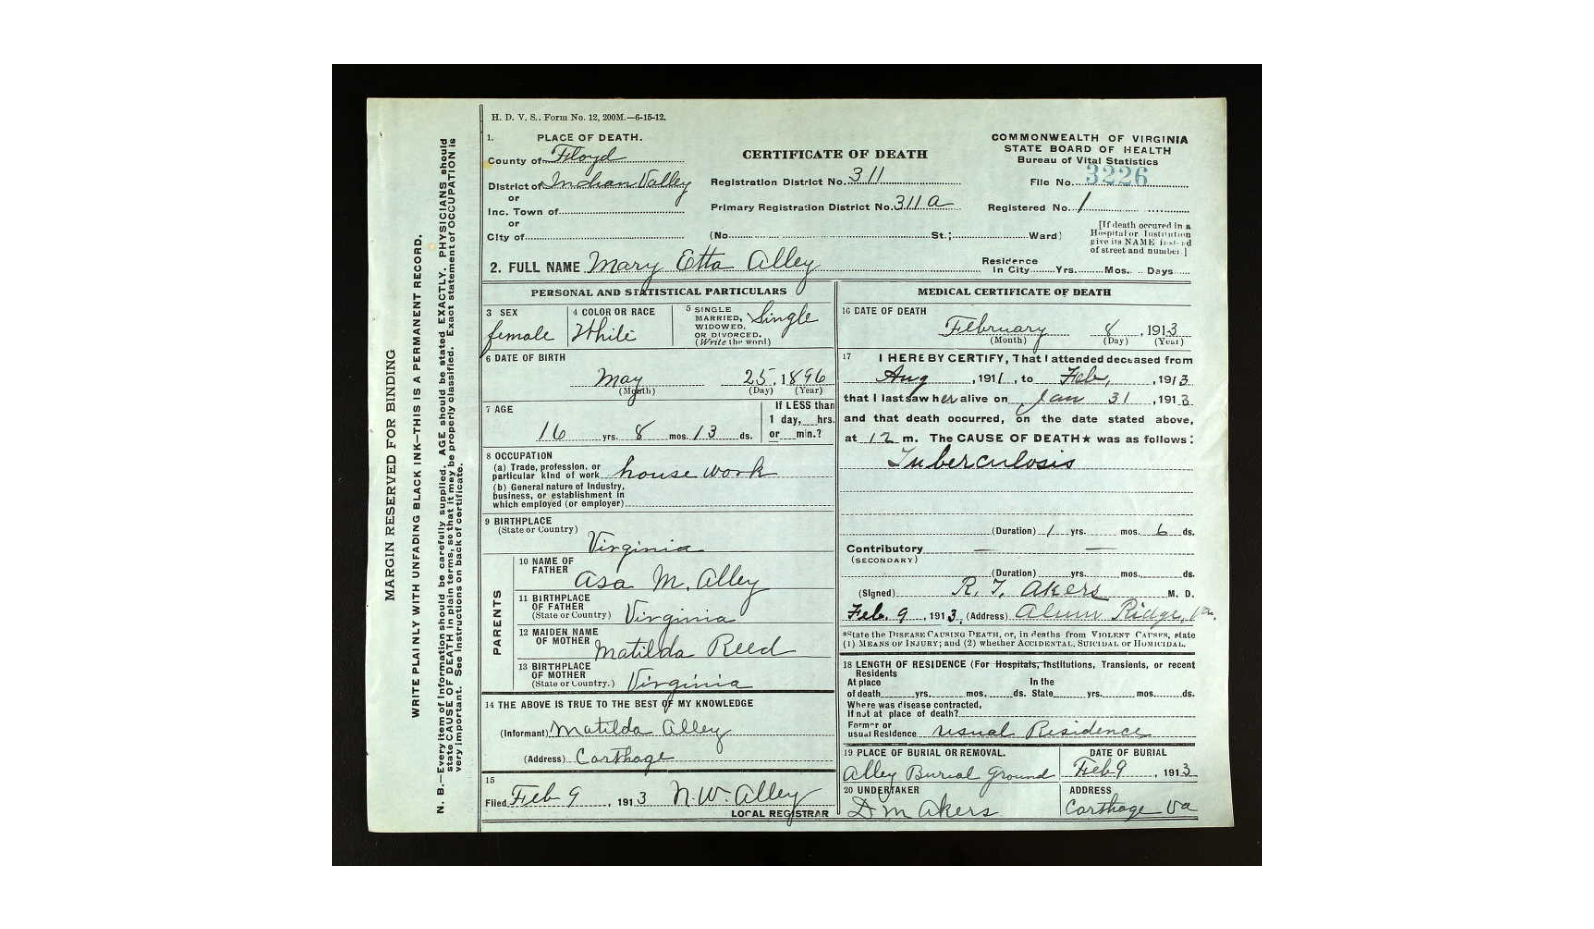 H. D. V. S.. Form No. 12, 200M.—6-15-12.
1. PLACE OF DEATH.
County of Floyd
District of Indian Valley
or
Inc. Town of
or
City of
CERTIFICATE OF DEATH
Registration District No. 311
Primary Registration District No. 311 a
(No. St.; Ward)
COMMONWEALTH OF VIRGINIA
STATE BOARD OF HEALTH
Bureau of Vital Statistics
File No. 3226
Registered No. 1
[If death occured in a
Hospital or Institution
give its NAME instead
of street and number.]
2. FULL NAME Mary Etta Alley
Residence
In City Yrs. Mos. Days
PERSONAL AND STATISTICAL PARTICULARS
3 SEX
female
4 COLOR OR RACE
White
5 SINGLE
MARRIED,
WIDOWED,
OR DIVORCED.
(Write the word)
Single
6 DATE OF BIRTH
May 25, 1896
(Month) (Day) (Year)
7 AGE
16 yrs. 8 mos. 13 ds.
If LESS than
1 day, hrs.
or min.?
8 OCCUPATION
(a) Trade, profession, or
particular kind of work house work
(b) General nature of Industry,
business, or establishment in
which employed (or employer)
9 BIRTHPLACE
(State or Country)
Virginia
PARENTS
10 NAME OF
FATHER
Asa M. Alley
11 BIRTHPLACE
OF FATHER
(State or Country) Virginia
12 MAIDEN NAME
OF MOTHER
Matilda Reed
13 BIRTHPLACE
OF MOTHER
(State or Country.) Virginia
14 THE ABOVE IS TRUE TO THE BEST OF MY KNOWLEDGE
(Informant) Matilda Alley
(Address) Carthage
15
Filed Feb 9, 1913 N. W. Alley
LOCAL REGISTRAR
MEDICAL CERTIFICATE OF DEATH
16 DATE OF DEATH
February 8, 1913
(Month) (Day) (Year)
17 I HEREBY CERTIFY, That I attended deceased from
Aug, 1911, to Feb, 1913
that I last saw her alive on Jan 31, 1913
and that death occurred, on the date stated above,
at 12 m. The CAUSE OF DEATH★ was as follows:
Tuberculosis
(Duration) 1 yrs. mos. 6 ds.
Contributory — —
(SECONDARY)
(Duration) yrs. mos. ds.
(Signed) R. T. Akers M. D.
Feb. 9, 1913, (Address) Alum Ridge, Va.
*State the DISEASE CAUSING DEATH, or, in deaths from VIOLENT CAUSES, state
(1) MEANS OF INJURY; and (2) whether ACCIDENTAL, SUICIDAL or HOMICIDAL.
18 LENGTH OF RESIDENCE (For Hospitals, Institutions, Transients, or recent
Residents
At place In the
of death yrs. mos. ds. State yrs. mos. ds.
Where was disease contracted,
If not at place of death?
Former or
usual Residence usual Residence
19 PLACE OF BURIAL OR REMOVAL.
Alley Burial Ground
DATE OF BURIAL
Feb 9, 1913
20 UNDERTAKER
D M Akers
ADDRESS
Carthage Va
MARGIN RESERVED FOR BINDING
WRITE PLAINLY WITH UNFADING BLACK INK—THIS IS A PERMANENT RECORD.
N. B.—Every item of information should be carefully supplied. AGE should be stated EXACTLY. PHYSICIANS should
state CAUSE OF DEATH in plain terms, so that it may be properly classified. Exact statement of OCCUPATION is
very important. See instructions on back of certificate.